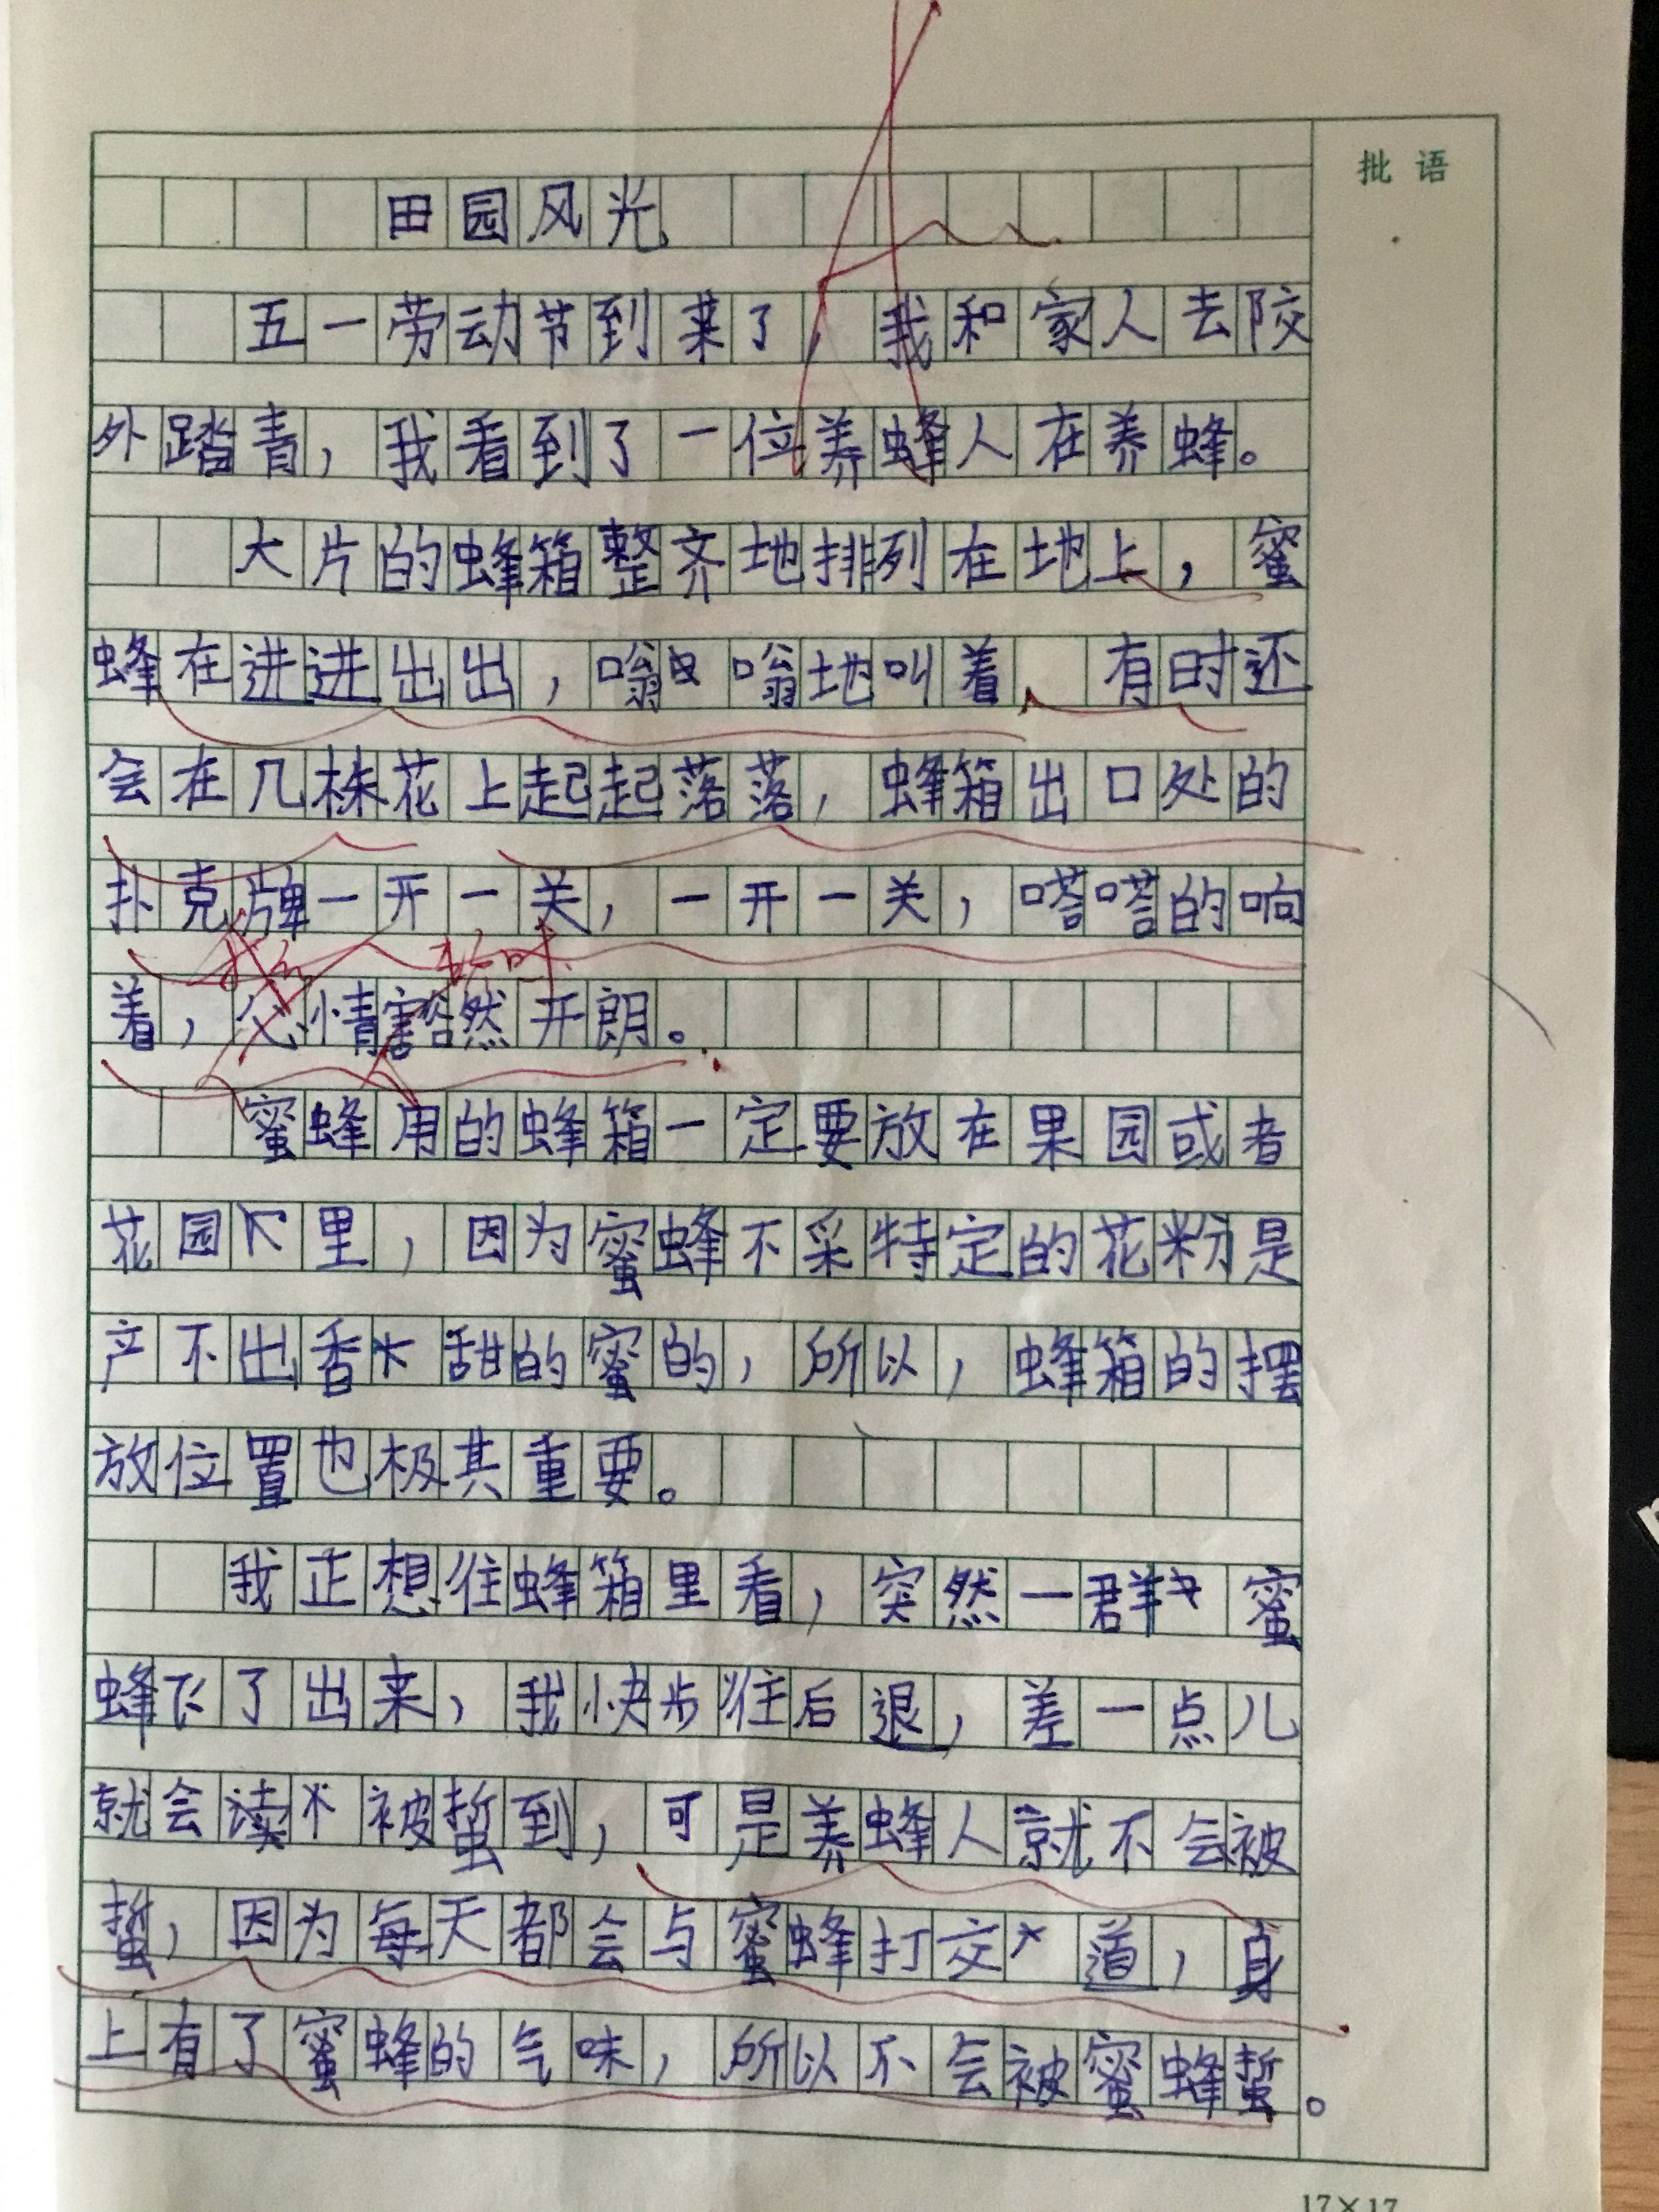 批语
田园风光
五一劳动节到来了，我和家人去郊
外踏青，我看到了一位养蜂人在养蜂。
大片的蜂箱整齐地排列在地上，蜜
蜂在进进出出，嗡嗡地叫着，有时还
会在几株花上起起落落，蜂箱出口处的
扑克牌一开一关，一开一关，嗒嗒的响
着，心情豁然开朗。
蜜蜂用的蜂箱一定要放在果园或者
花园里，因为蜜蜂不采特定的花粉是
产不出香甜的蜜的，所以，蜂箱的摆
放位置也极其重要。
我正想往蜂箱里看，突然一群蜜
蜂飞了出来，我快步往后退，差一点儿
就会被蜇到，可是养蜂人就不会被
蜇，因为每天都会与蜜蜂打交道，身
上有了蜜蜂的气味，所以不会被蜜蜂蜇。
17×17